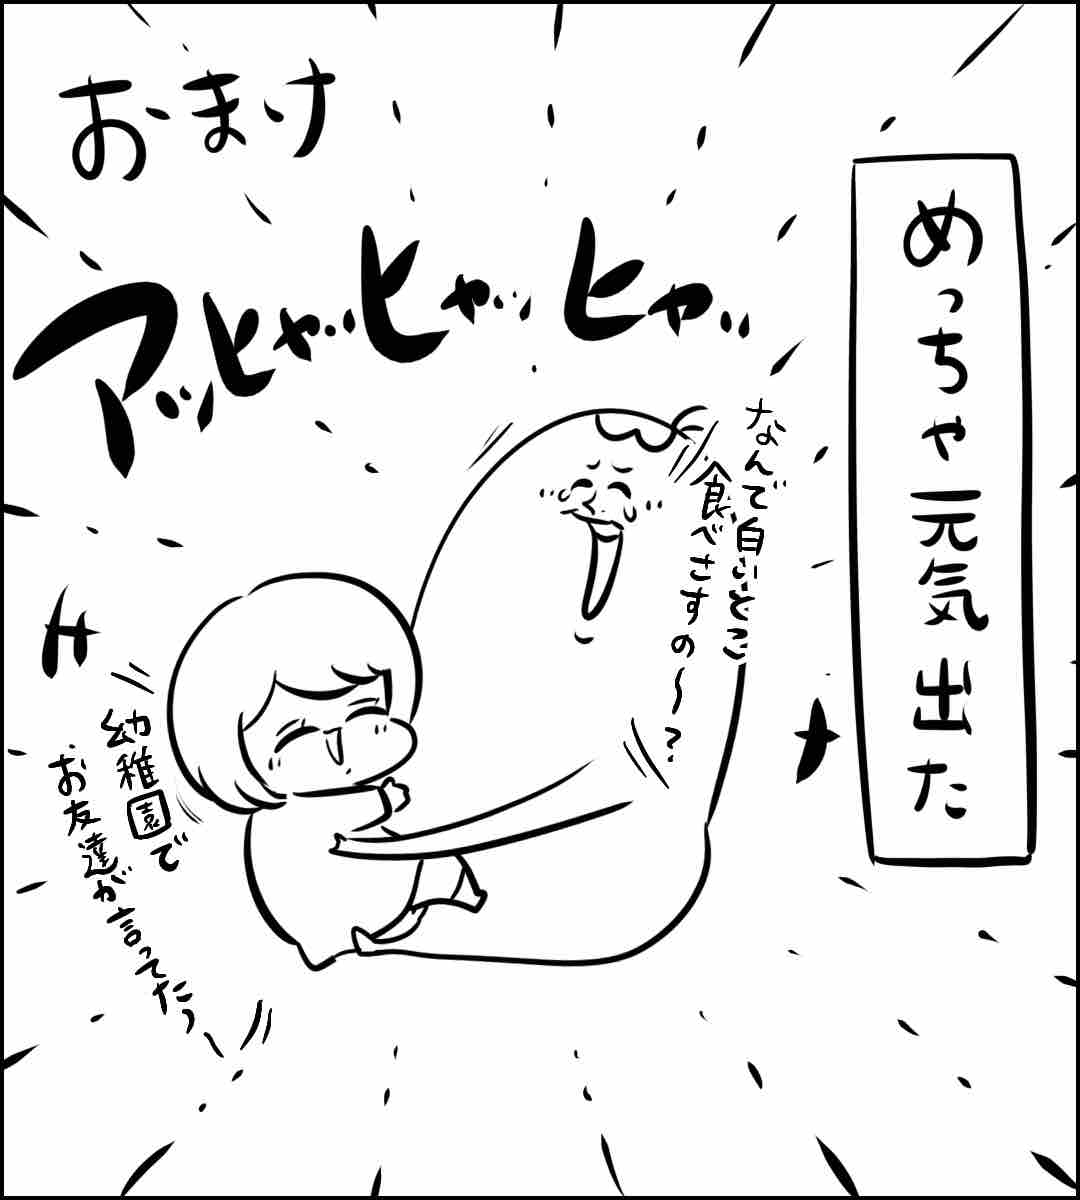 おまけ
めっちゃ元気出た
アッヒャヒャヒャ
なんで白いとこ
食べさすの〜?
幼稚園で
お友達が言ってたぅ〜